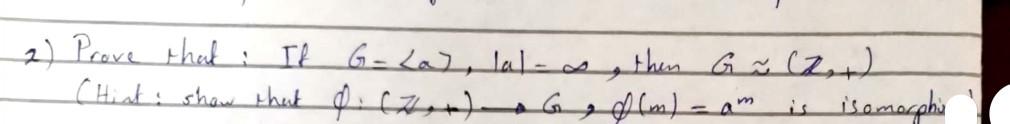 2) Prove that : If G = <a>, |a| = ∞, then G ≈ (ℤ,+)
(Hint : show that ϕ : (ℤ,+) → G, ϕ(m) = a^m is